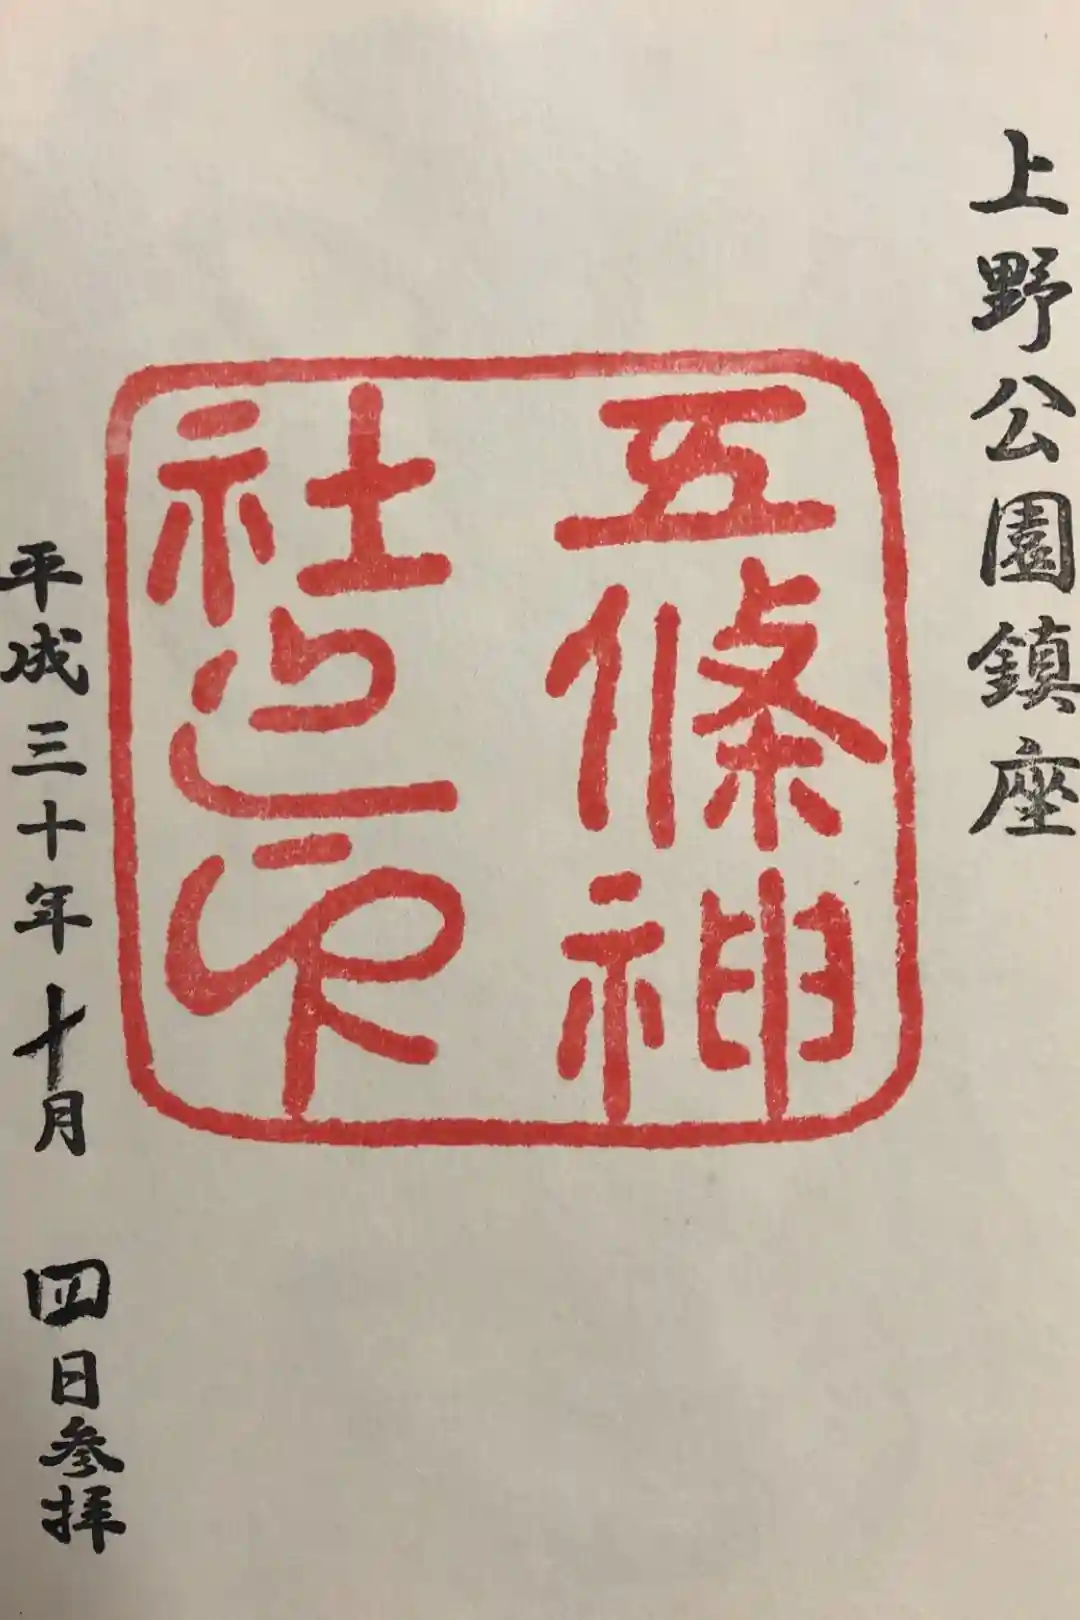 上野公園鎮座
五條神
社之印
平成三十年十月四日参拝